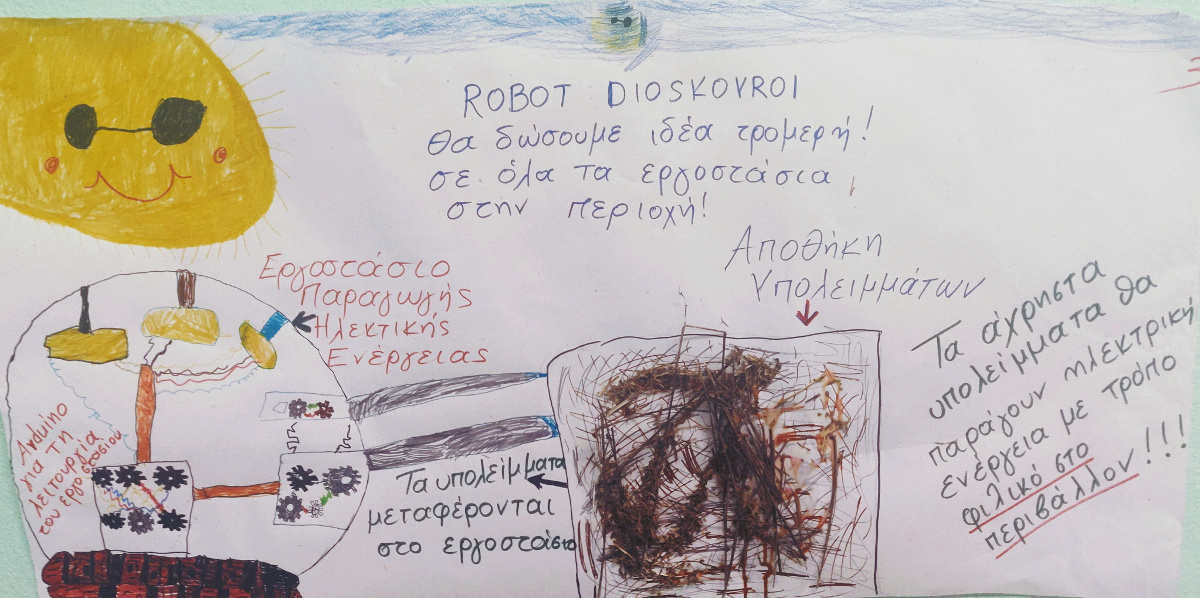 ROBOT DIOSKOVROI
Θα δώσουμε ιδέα τρομερή!
σε όλα τα εργοστάσια,
στην περιοχή!
Εργοστάσιο
Παραγωγής
Ηλεκτικής
Ενέργειας
Αποθήκη
Υπολειμμάτων
Τα άχρηστα
υπολείμματα θα
παράγουν ηλεκτρική
ενέργεια με τρόπο
φιλικό στο
περιβάλλον!!!
Arduino
για τη
λειτουργία
του εργοστασίου
Τα υπολείμματα
μεταφέρονται
στο εργοστάσιο